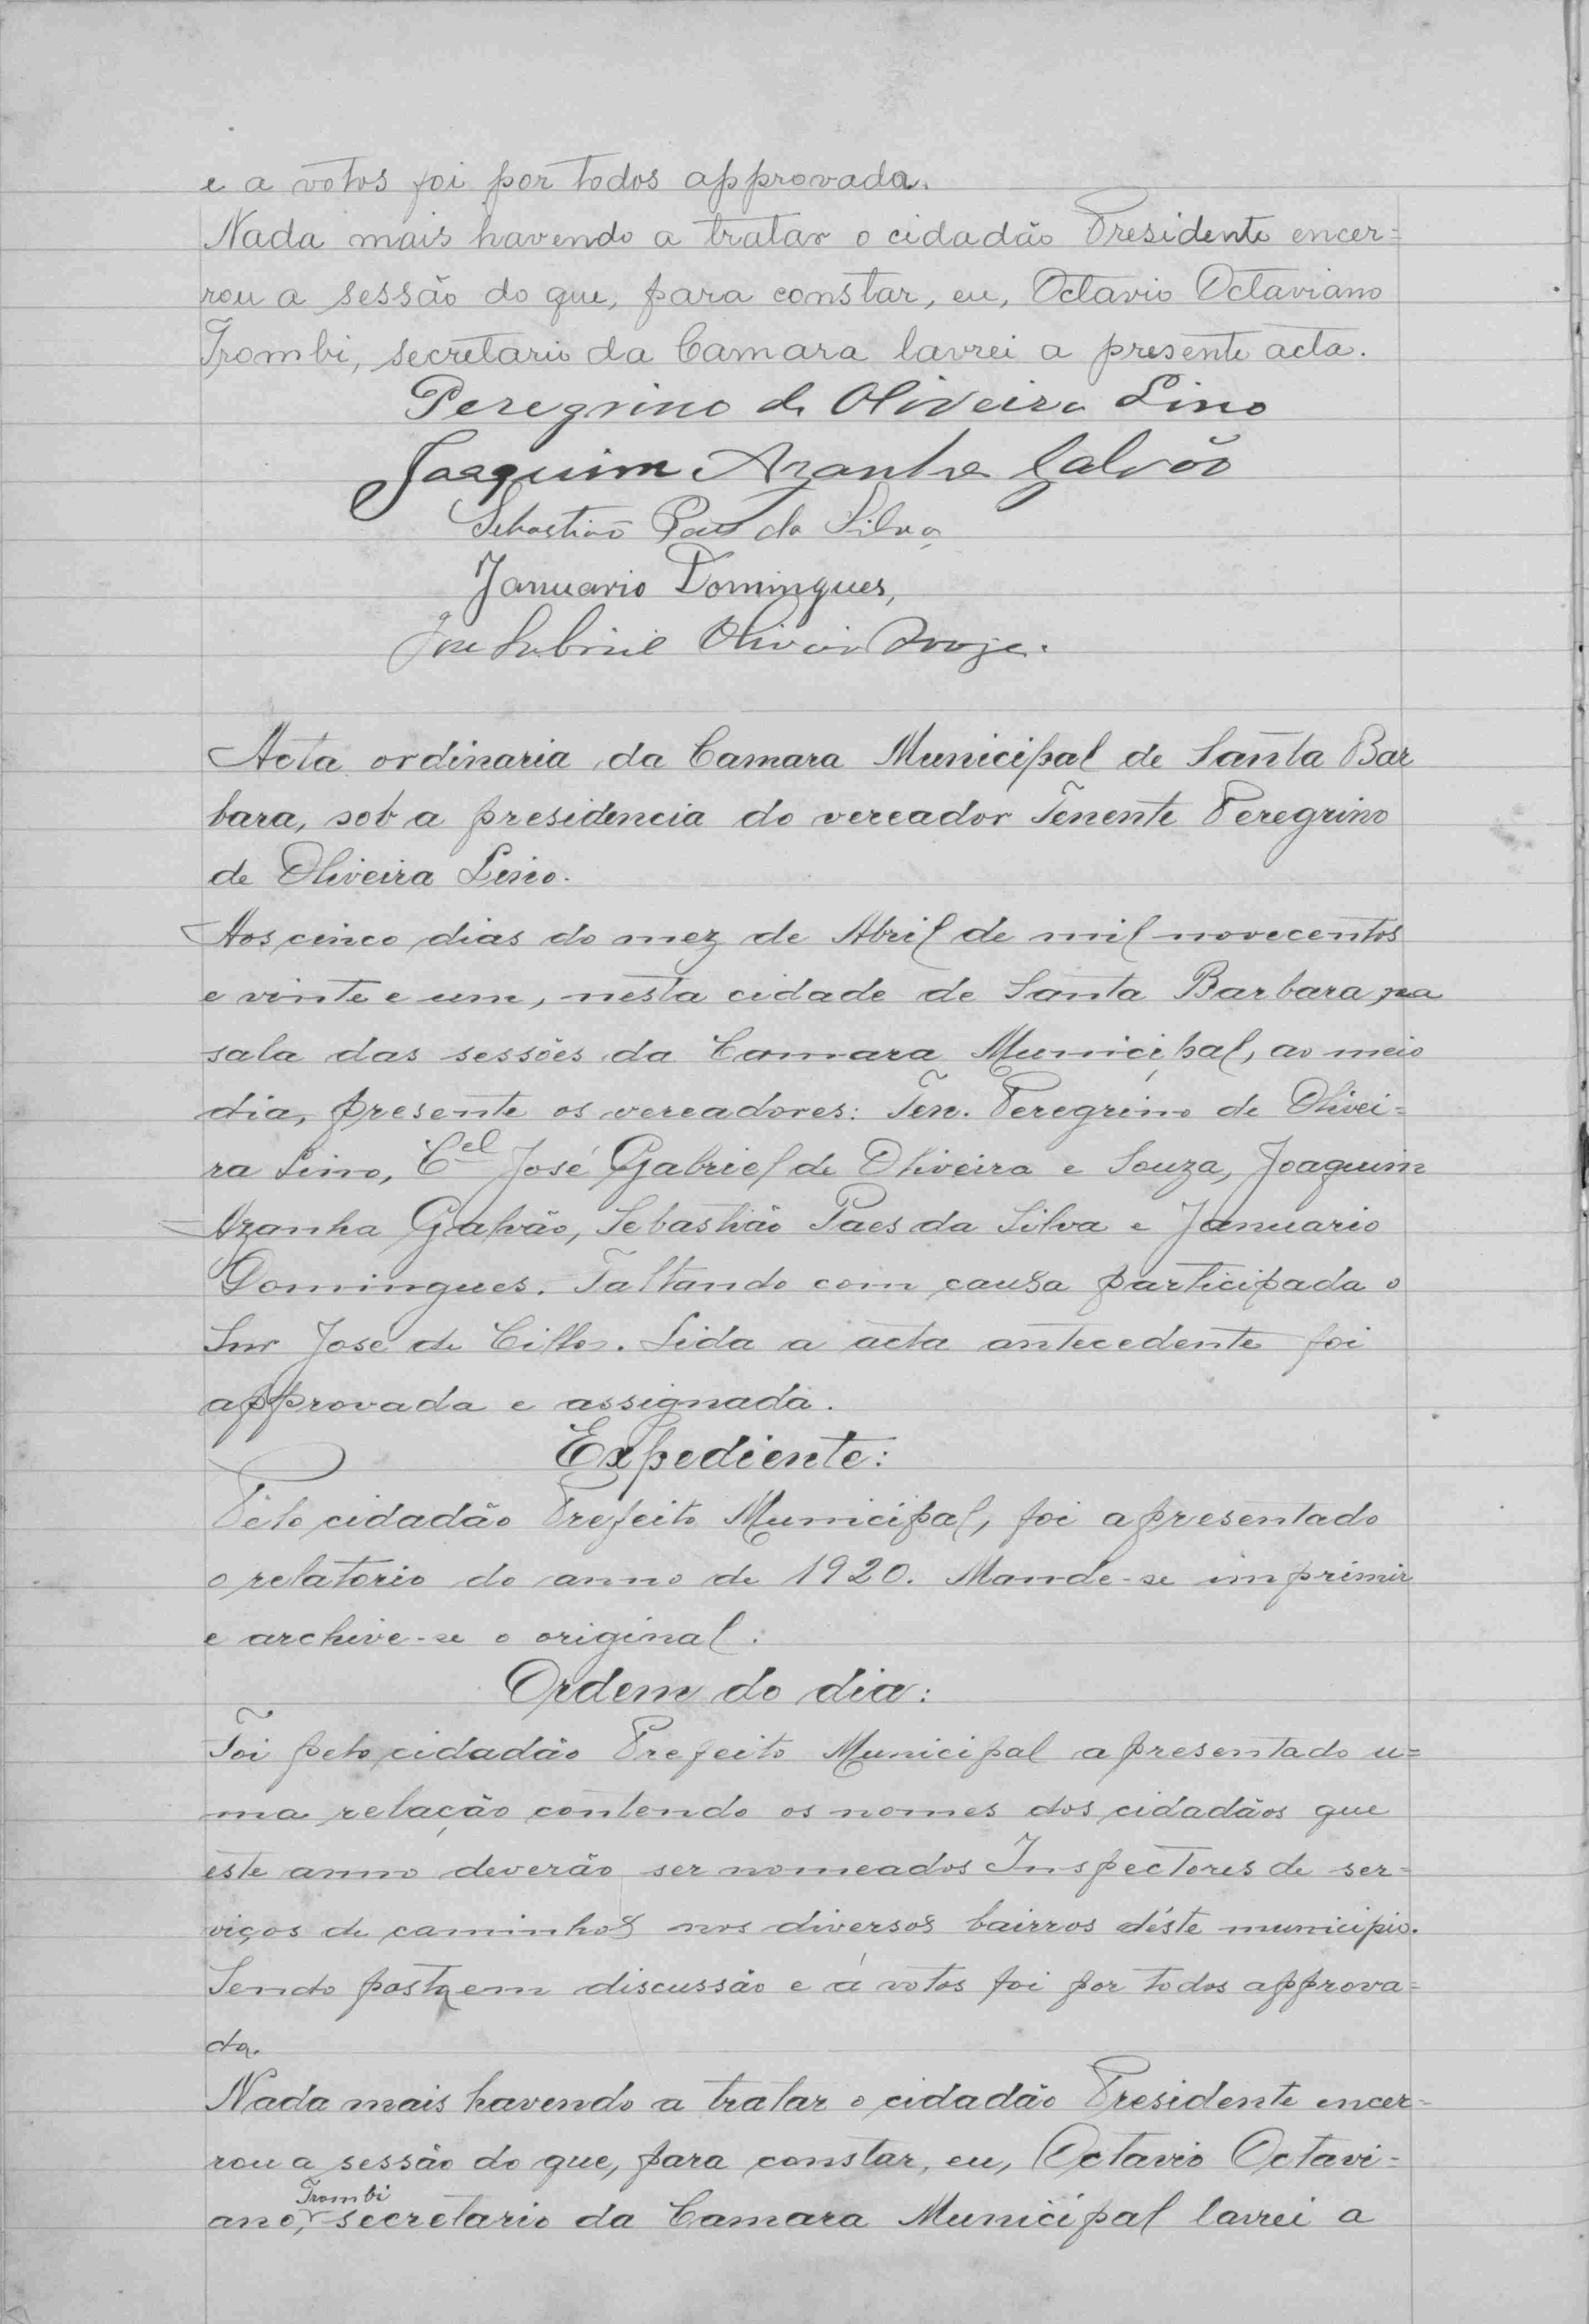 e a votos foi por todos approvada.
Nada mais havendo a tratar o cidadão Presidente encer=
rou a sessão do que, para constar, eu, Octavio Octaviano
Trombi, secretario da Camara lavrei a presente acta.
Peregrino de Oliveira Lino
Joaquim Azanha Galvão
Sebastião Paes da Silva
Januario Domingues,
José Gabriel Oliveira Souza.
Acta ordinaria da Camara Municipal de Santa Bar
bara, sob a presidencia do vereador Tenente Peregrino
de Oliveira Lino.
Aos cinco dias do mez de Abril de mil novecentos
e vinte e um, nesta cidade de Santa Barbara na
sala das sessões da Camara Municipal, ao meio
dia, presente os vereadores: Ten. Peregrino de Olivei=
ra Lino, Cel José Gabriel de Oliveira e Souza, Joaquim
Azanha Galvão, Sebastião Paes da Silva e Januario
Domingues. Faltando com causa participada o
Snr José de Cillos. Lida a acta antecedente foi
approvada e assignada.
Expediente:
Pelo cidadão Prefeito Municipal, foi apresentado
o relatorio do anno de 1920. Mande-se imprimir
e archive-se o original.
Ordem do dia:
Foi pelo cidadão Prefeito Municipal apresentado u=
ma relação contendo os nomes dos cidadãos que
este anno deverão ser nomeados Inspectores de ser=
viços de caminhos nos diversos bairros déste municipio.
Sendo posta em discussão e á votos foi por todos approva=
da.
Nada mais havendo a tratar o cidadão Presidente encer=
rou a sessão do que, para constar, eu, Octavio Octavi=
Trombi
ano, secretario da Camara Municipal lavrei a